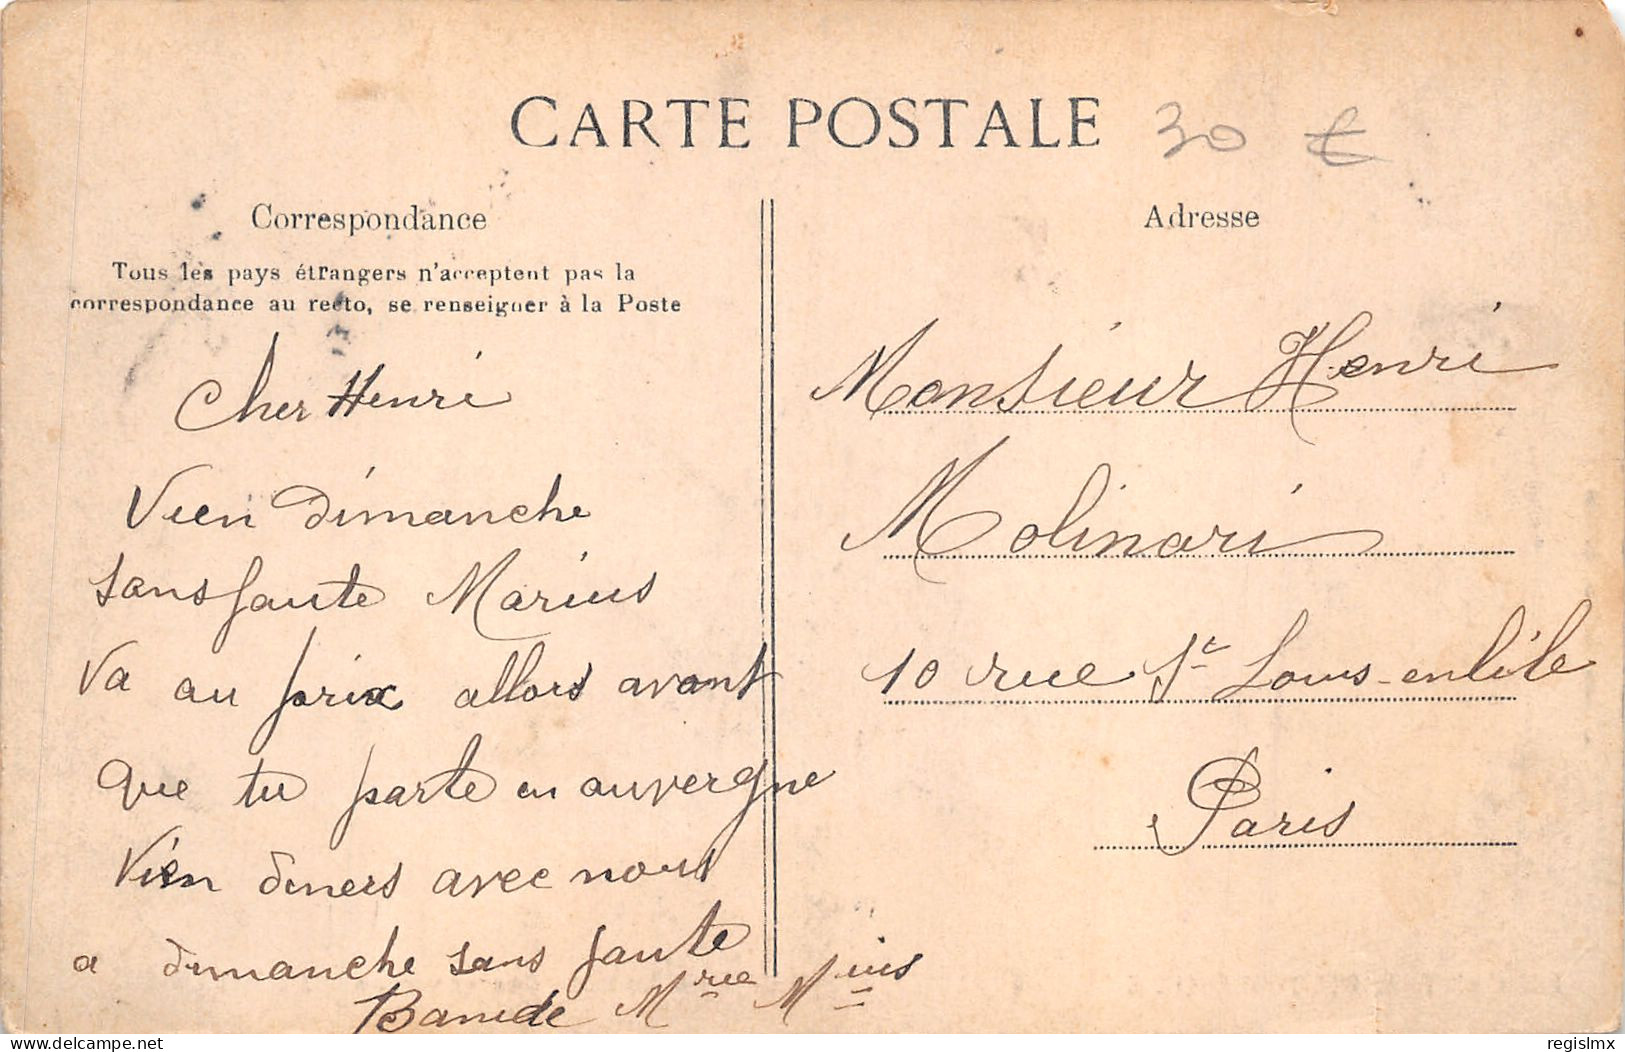 CARTE POSTALE
30 €
Correspondance
Tous les pays étrangers n'acceptent pas la
correspondance au recto, se renseigner à la Poste
Cher Henri
Vien dimanche
sans faute Marius
va au prix allors avant
que tu parte en auvergne
Vien diners avec nous
a dimanche sans faute
Adresse
Monsieur Henri
Molinari
10 rue St Louis-enlile
Paris
delcampe.net
regislmx